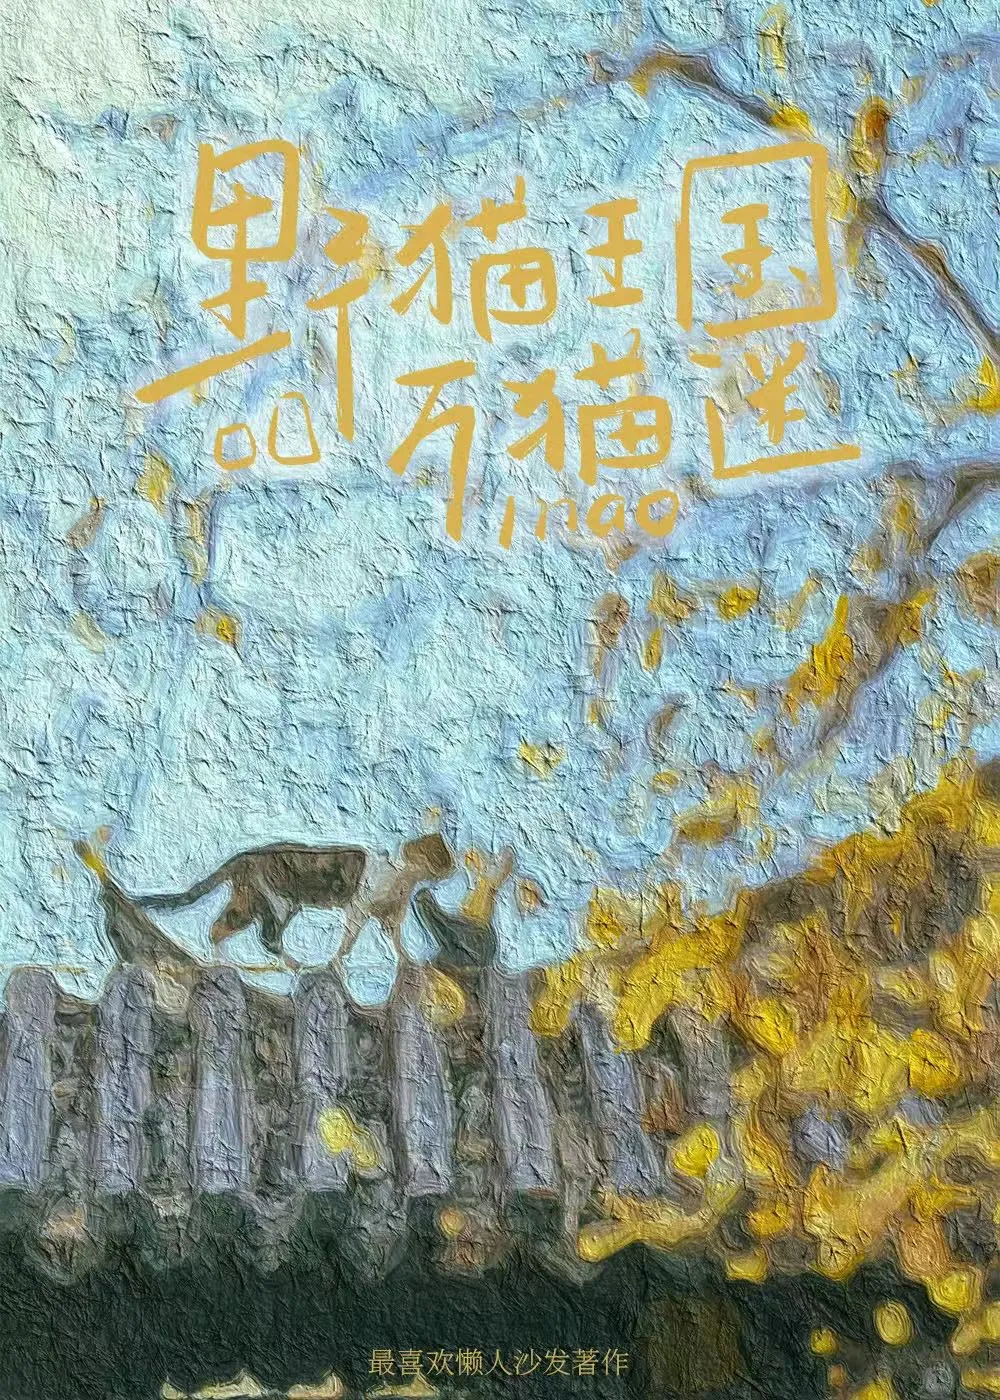 野猫王国
万猫迷
mao
最喜欢懒人沙发著作